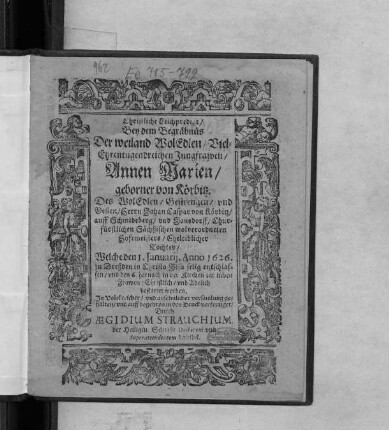 962
Ed 715-799
Christliche Leichpredigt/
Bey dem Begräbnüs
Der weiland WolEdlen/ Viel-
Ehrentugendreichen Jungfrawen/
Annen Marien/
geborner von Körbitz.
Des WolEdlen/ Gestrengen/ vnd
Vesten/ Herrn Johan Caspar von Körbitz/
auff Schmideberg/ vnd Hausdorff/ Chur-
fürstlichen Sächsischen wolverordneten
Hofemeisters/ Eheleiblicher
Tochter/
Welche den 1. Januarij, Anno 1626.
zu Dreßden in Christo Jesu selig entschlaf-
fen/ vnd den hernach in der Kirchen
Christlich/ vnd Adelich
bestattet worden.
In Volckreicher/ vnd ansehnlicher versamlung ge-
halten/ vnd auff begehren in den Druck verfertiget/
Durch
ÆGIDIUM STRAUCHIUM,
der Heiligen Schrifft Doctorem vnd
Superintendentem